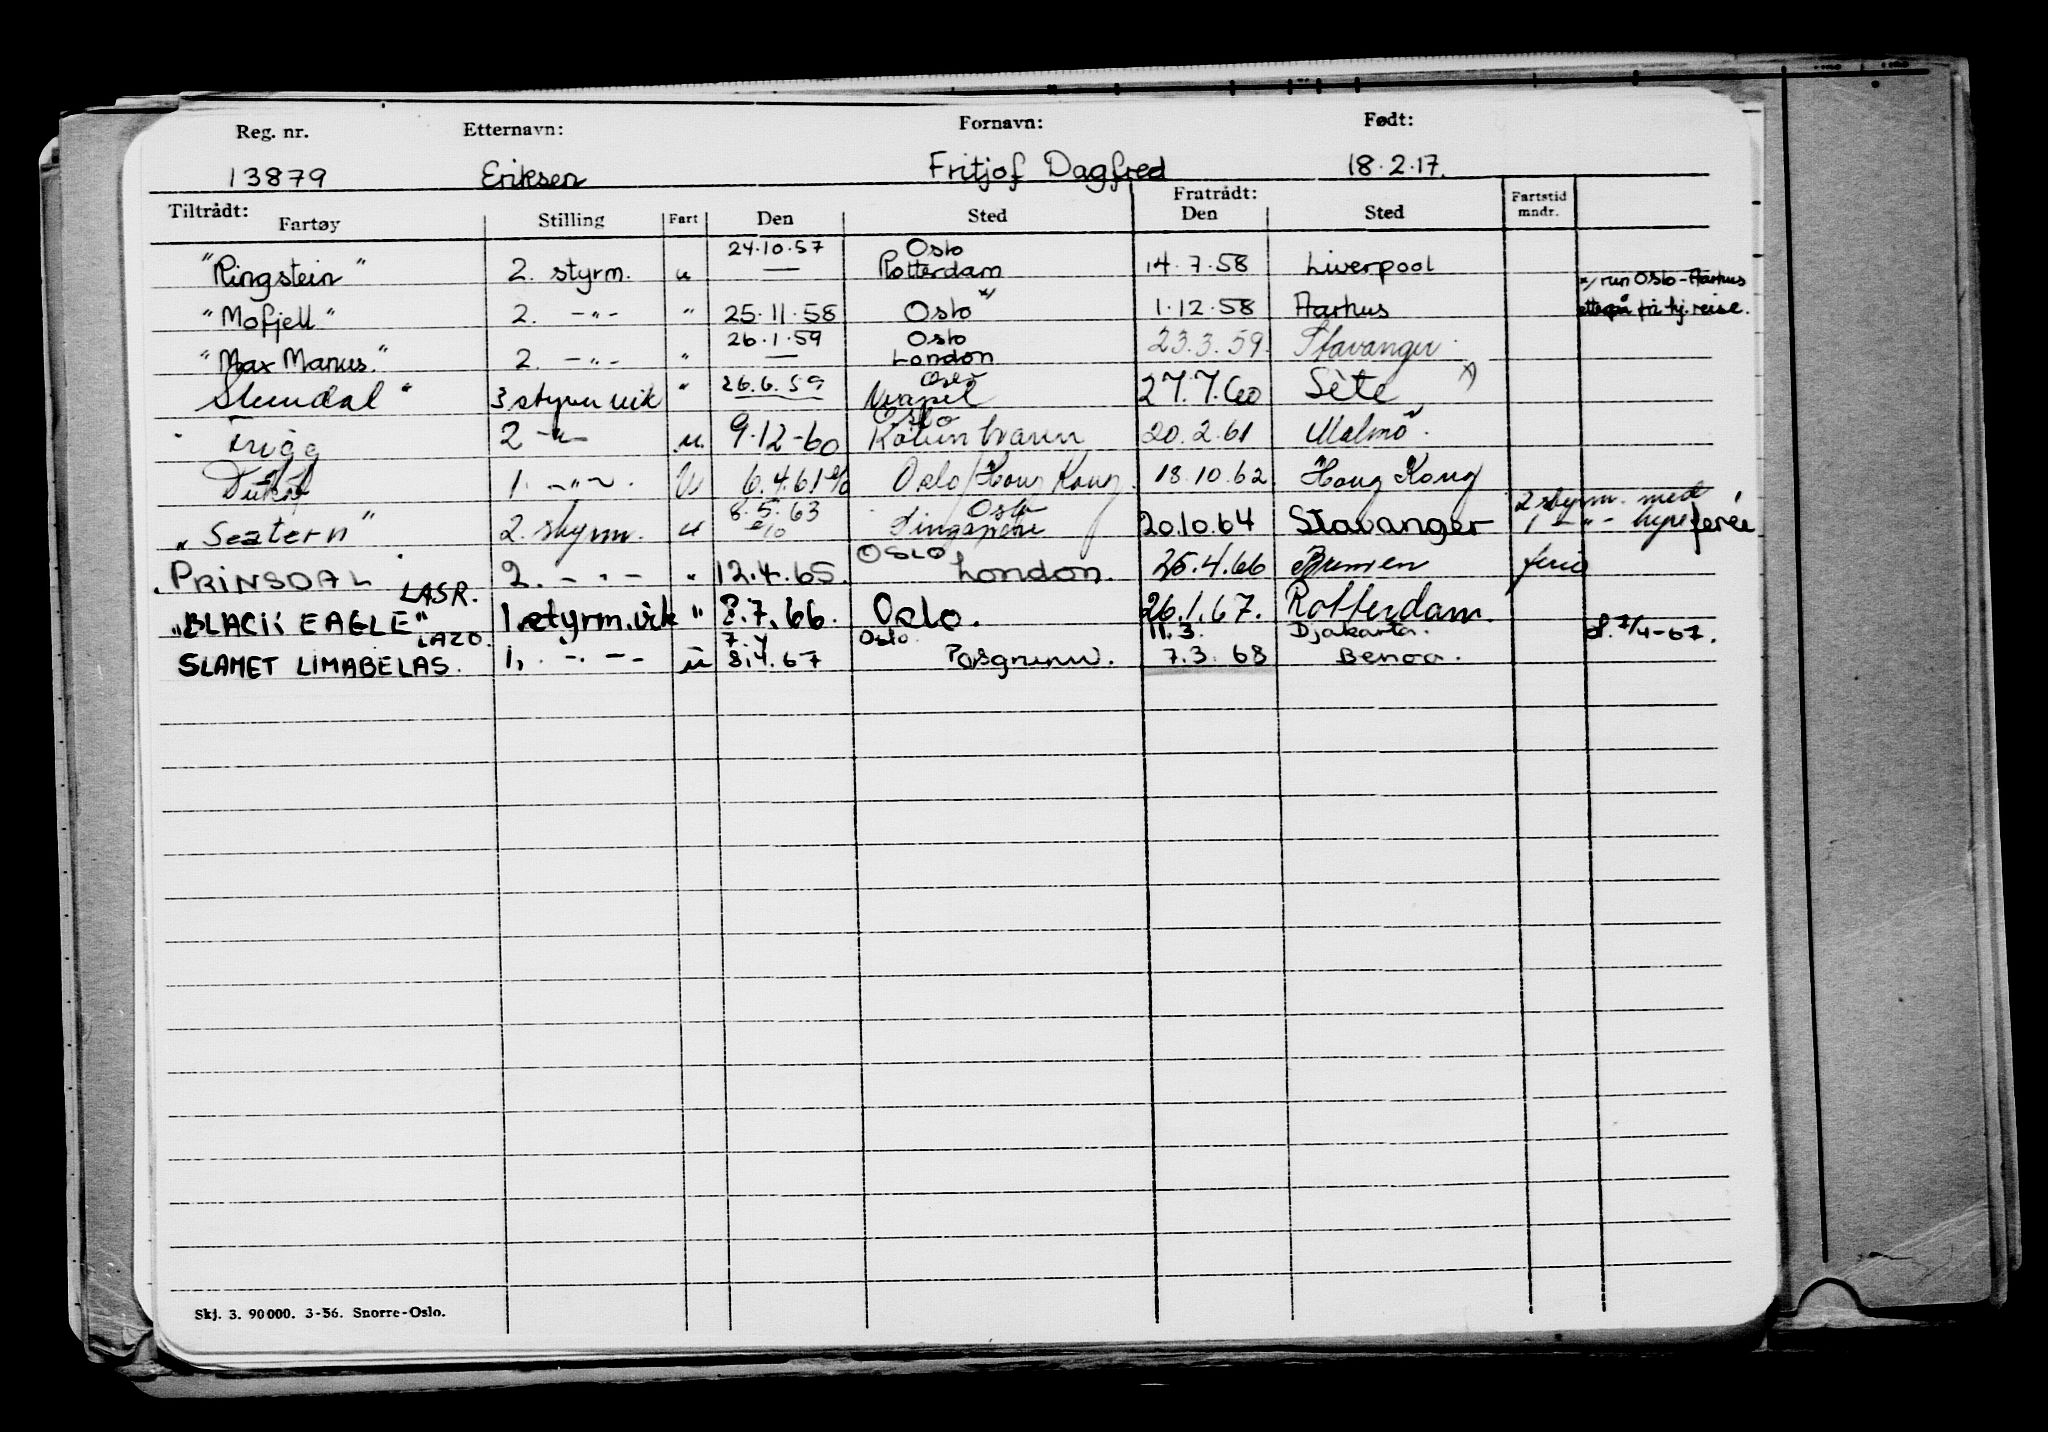 Reg. nr. Etternavn: Fornavn: Født:
13879 Eriksen Fritjof Dagfred 18.2.17.
Tiltrådt: Fratrådt:
Fartøy Stilling Fart Den Sted Den Sted Fartstid mndr.
24.10.57 Oslo
"Ringstein" 2. styrm. u — Rotterdam 14.7.58 Liverpool
x/ run Oslo-Aarhus
"Mofjell" 2. -"- " 25.11.58 Oslo x/ 1.12.58 Aarhus fri hj. reise.
26.1.59 Oslo
"Max Manus" 2. -"- " — London 23.3.59. Stavanger
26.6.59 Oslo
Slemdal " 3 styrm vik " 27.7.60 Sète x)
Oslo
Trigg 2 -"- u. 9.12-60 20.2.61 Malmö
1. -"-. U 6.4.61 Oslo/Hong Kong 18.10.62. Hong Kong
8.5.63 Oslo 2 styrm. med
"Seatern" 2. styrm. u Singapore 20.10.64 Stavanger 1 -"- hyre ferie
OSLO
"PRINSDAL 2. - " - " 12.4.65. London. 25.4.66 Bremen ferie
LASR.
"BLACK EAGLE" 1. styrm. vik " 2.7.66. Oslo. 26.1.67. Rotterdam.
LAZO. 7.4 Oslo. 11.3. Djakarta. 7/4-67.
SLAMET LIMABELAS. 1. - " - - u 8.4.67 Porsgrunn. 7.3.68 Benoa.
Skj. 3. 90000. 3-56. Snorre-Oslo.